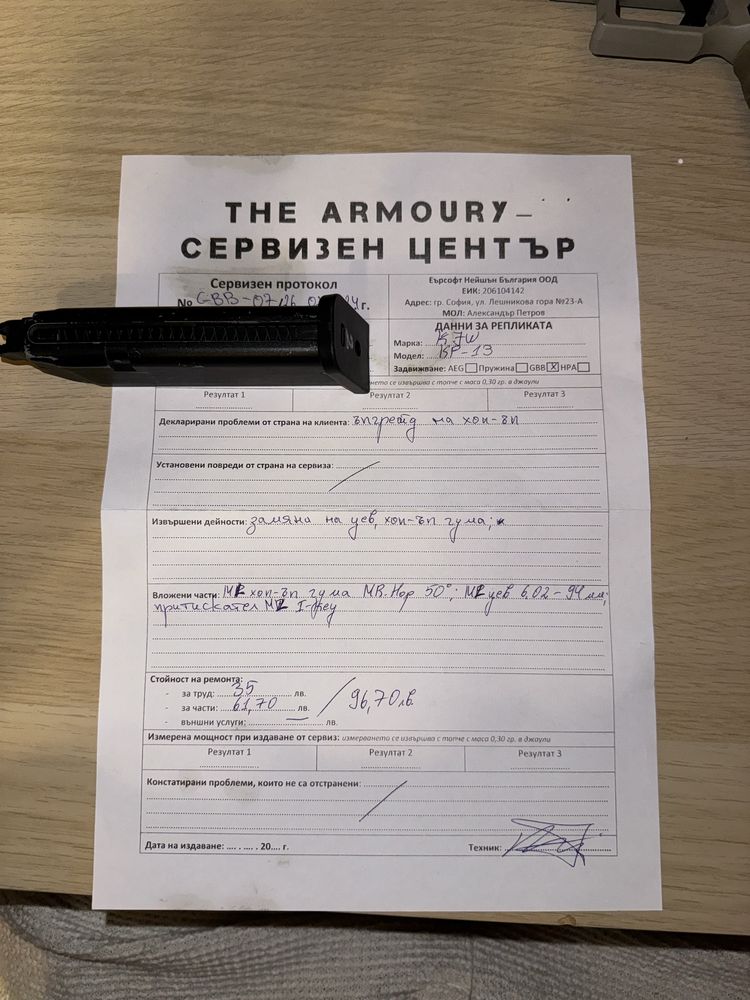 THE ARMOURY –
СЕРВИЗЕН ЦЕНТЪР
Сервизен протокол
№ GBB-07/26 г.
Еърсофт Нейшън България ООД
ЕИК: 206104142
Адрес: гр. София, ул. Лешникова гора №23-А
МОЛ: Александър Петров
ДАННИ ЗА РЕПЛИКАТА
Марка: KJW
Модел: KP-13
Задвижване: AEG Пружина GBB X HPA
се извършва с топче с маса 0,30 гр. в джаули
Резултат 1 Резултат 2 Резултат 3
Декларирани проблеми от страна на клиента: ъпгрейд на хоп-ъп
Установени повреди от страна на сервиза:
Извършени дейности: замяна на цев, хоп-ъп гума;
Вложени части: ML хоп-ъп гума MR.Hop 50°; ML цев 6,02-94 мм;
притискател ML I-Key
Стойност на ремонта:
- за труд: 35 лв.
- за части: 61,70 лв. / 96,70 лв.
- външни услуги: — лв.
Измерена мощност при издаване от сервиз: измерването се извършва с топче с маса 0,30 гр. в джаули
Резултат 1 Резултат 2 Резултат 3
Констатирани проблеми, които не са отстранени:
Дата на издаване: .... . .... . 20.... г. Техник: